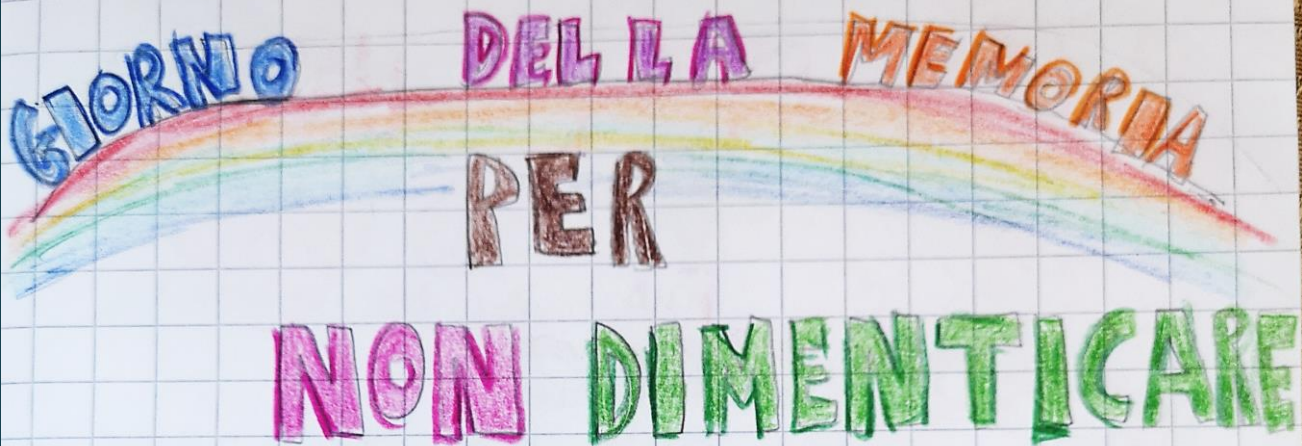 GIORNO DELLA MEMORIA
PER
NON DIMENTICARE